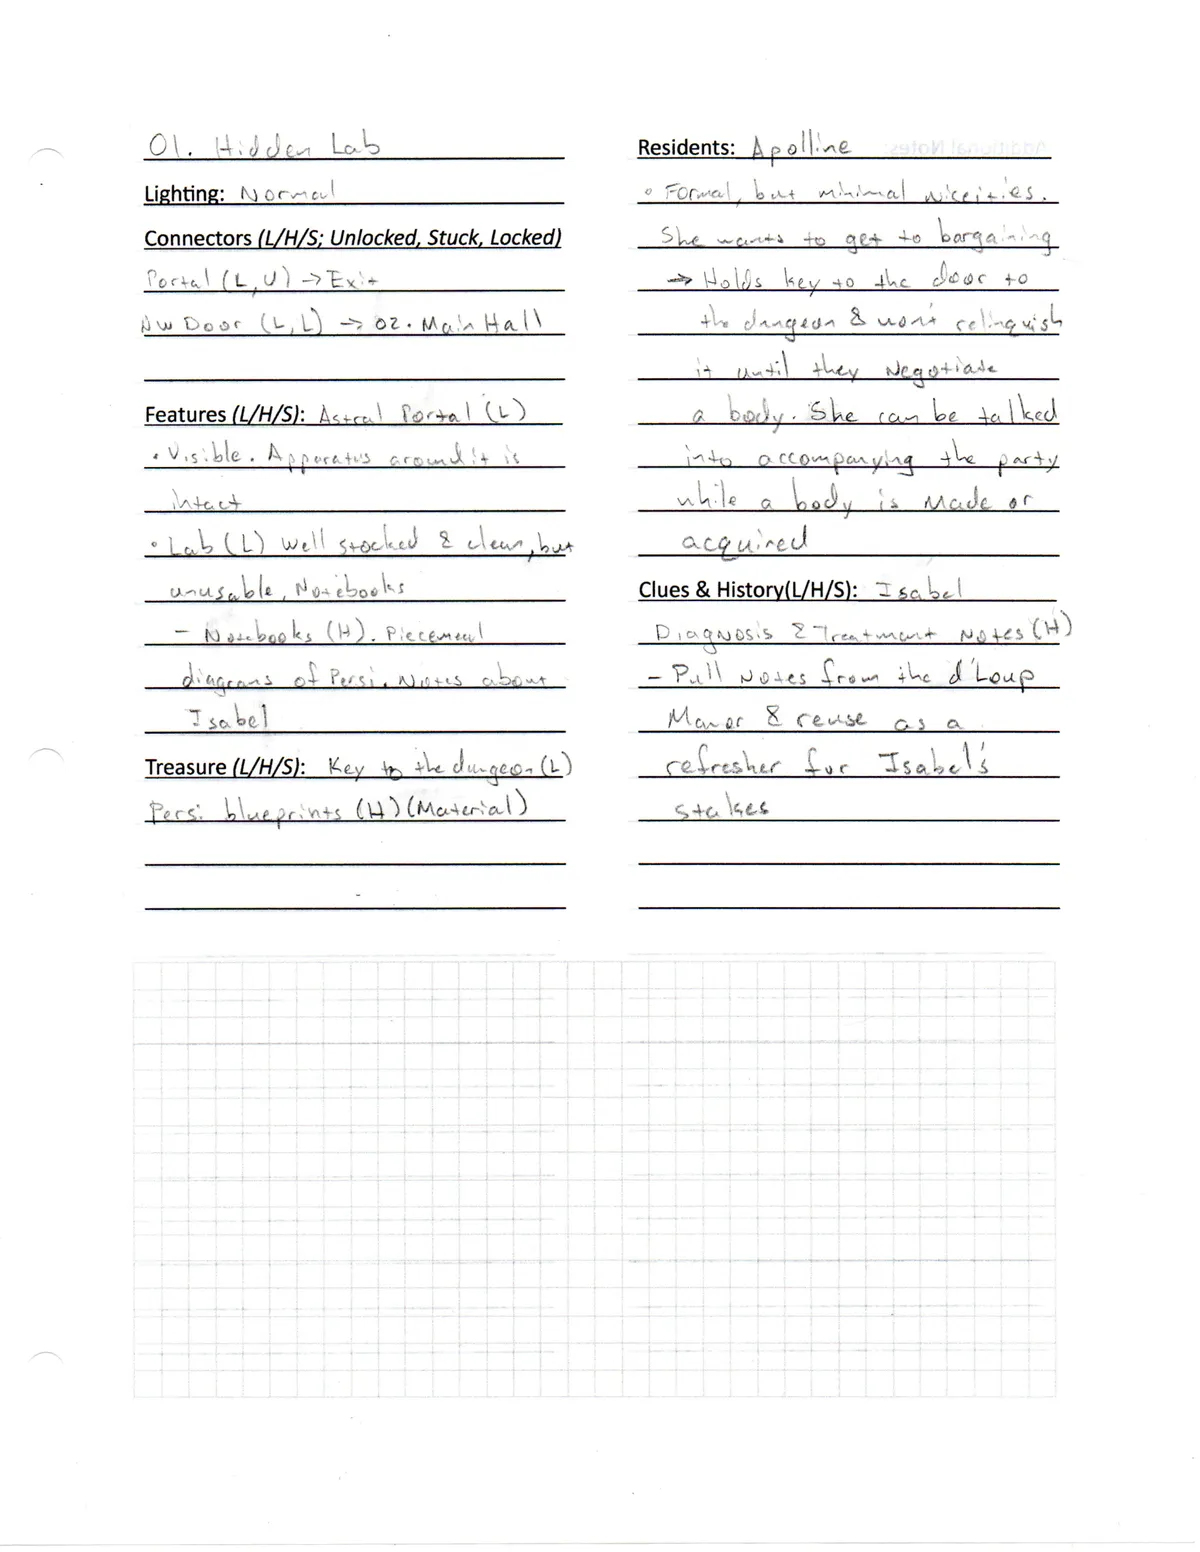 01. Hidden Lab
Lighting: Normal
Connectors (L/H/S; Unlocked, Stuck, Locked)
Portal (L, U) → Exit
NW Door (L, L) → 02. Main Hall
Features (L/H/S): Astral Portal (L)
• Visible. Apparatus around it is
intact
• Lab (L) Well stocked & clean, but
unusable, Notebooks
- Notebooks (H). Piecemeal
diagrams of Persi. Notes about
Isabel
Treasure (L/H/S): Key to the dungeon (L)
Persi blueprints (H) (Material)
Residents: Apolline
• Formal, but minimal niceities.
She wants to get to bargaining
→ Holds key to the door to
the dungeon & won't relinquish
it until they Negotiate
a body. She can be talked
into accompanying the party
while a body is Made or
acquired
Clues & History(L/H/S): Isabel
Diagnosis & Treatment Notes (H)
- Pull Notes from the d'Loup
Manor & reuse as a
refresher for Isabel's
stakes
Additional Notes: